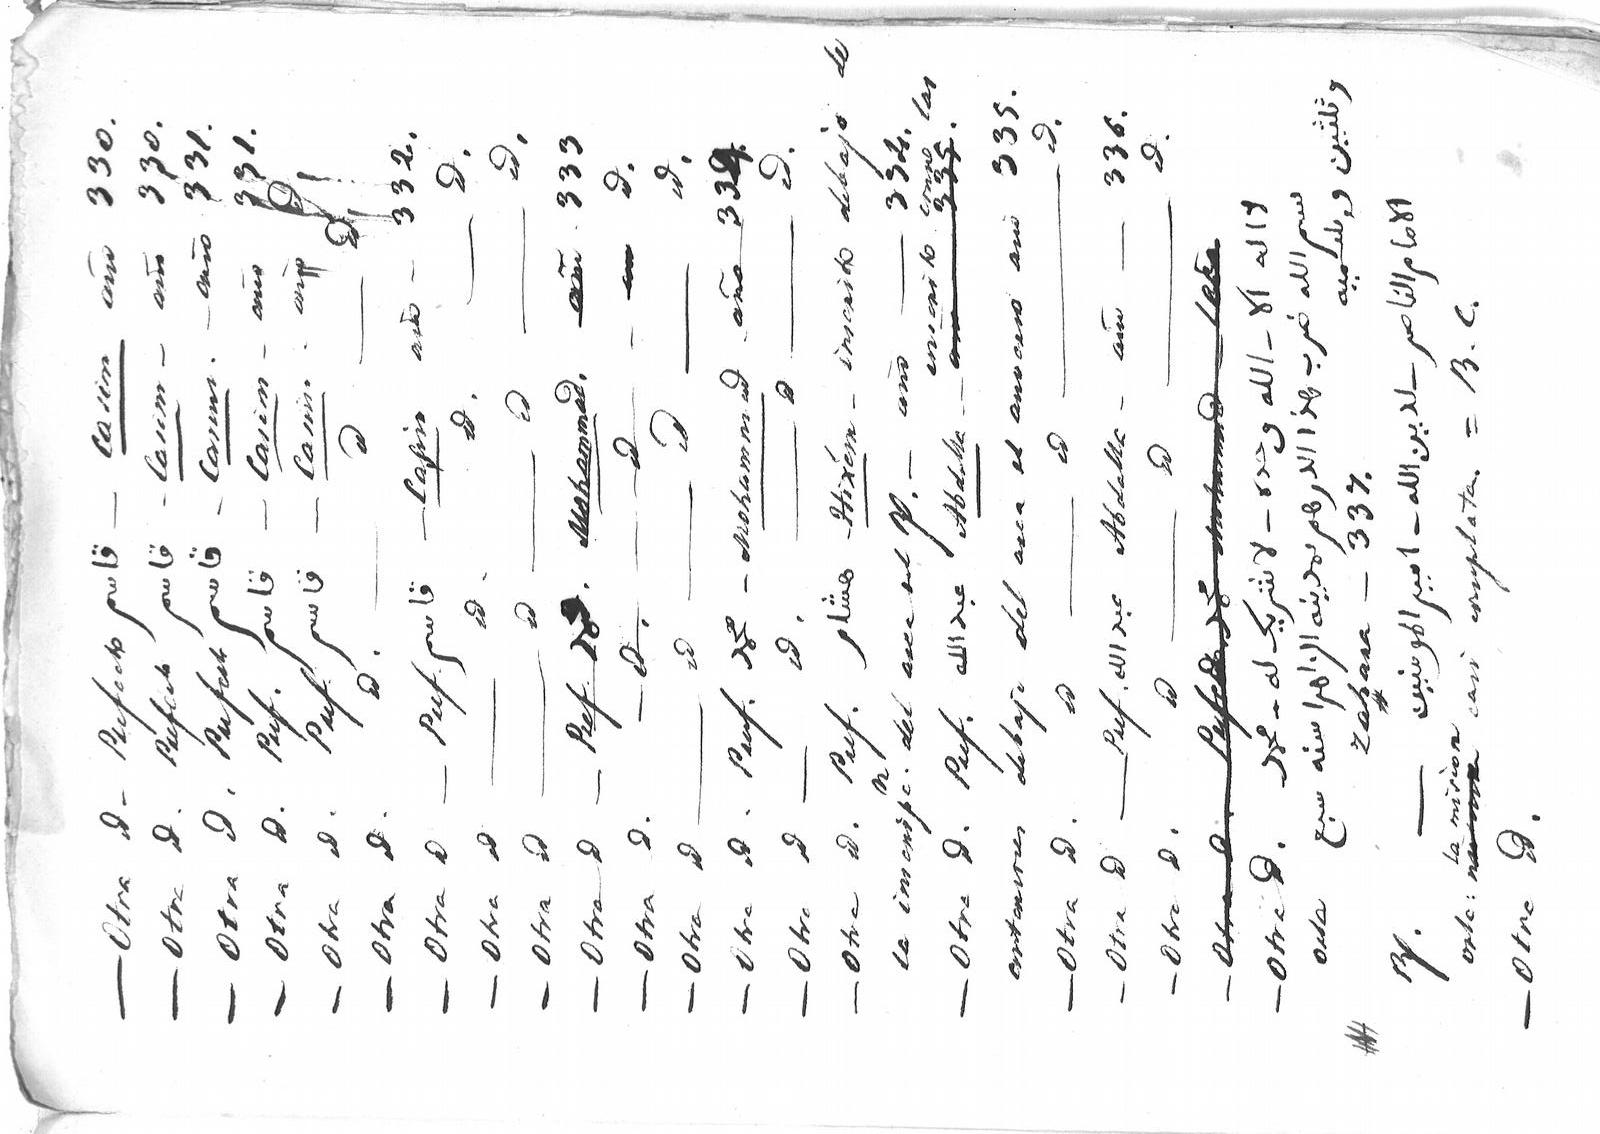 — Otra id. — Prefecto قاسم — Casim año 330.
— Otra id. Prefecto قاسم — Casim — año 330.
— Otra id. Prefecto قاسم — Casim. — año 331.
— Otra id. Pref. قاسم — Casim — año 331.
— Otra id. Pref. قاسم — Casim. año id
— Otra id. id. — id — id
— Otra id — Pref. قاسم — Casim año — 332.
— Otra id — id. id. — id.
— Otra id — id — id — id.
— Otra id — Pref. محمد. Mohammad. año 333
— Otra id. — id. — id — id.
— Otra id — id — id — id.
— Otra id. Pref. محمد — Mohammad año 334.
— Otra id — id. — id — id.
— Otra id. Pref. هشام — Hixém — inscrito debajo de
la inscripcn. del area del P. — año — 334.
— Otra id. Pref. عبد الله Abdalla — inscrito como las
anteriores debajo del area el anverso año 335.
— Otra id. — id — id — id.
— Otra id — Pref. عبد الله Abdalla — año — 336.
— Otra id. — id — id — id.
— Otra id. Pref. محمد Mohammad
— Otra id. محمد — لا اله الا — الله وحده — لا شريك له
orla بسم الله ضرب هذا الدرهم بمدينة الزهرا سنه سبع
وثلثين وثلثميه
Zahara — 337.
P. — الامام الناصر — لدين الله — امير المومنين
orla: la mision casi completa. = B. C.
— Otra id.